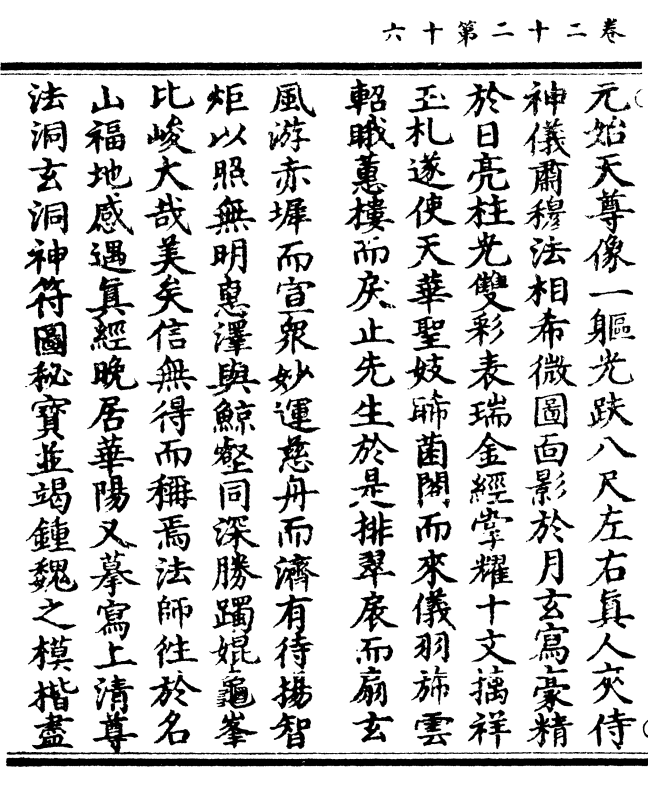 卷二十二第十六
元始天尊像一軀光趺八尺左右真人夾侍
神儀肅穆法相希微圖面影於月玄寫豪精
於日亮柱光雙彩表瑞金經掌耀十文摛祥
玉札遂使天華聖妓睎菌閣而來儀羽斾雲
軺睋蕙樓而戾止先生於是排翠扆而扇玄
風游赤墀而宣眾妙運慈舟而濟有待揚智
炬以照無明惠澤與鯨壑同深勝躅媲龜峯
比峻大哉美矣信無得而稱焉法師往於名
山福地感遇真經晚居華陽又摹寫上清尊
法洞玄洞神符圖秘寶並竭鍾魏之模楷盡